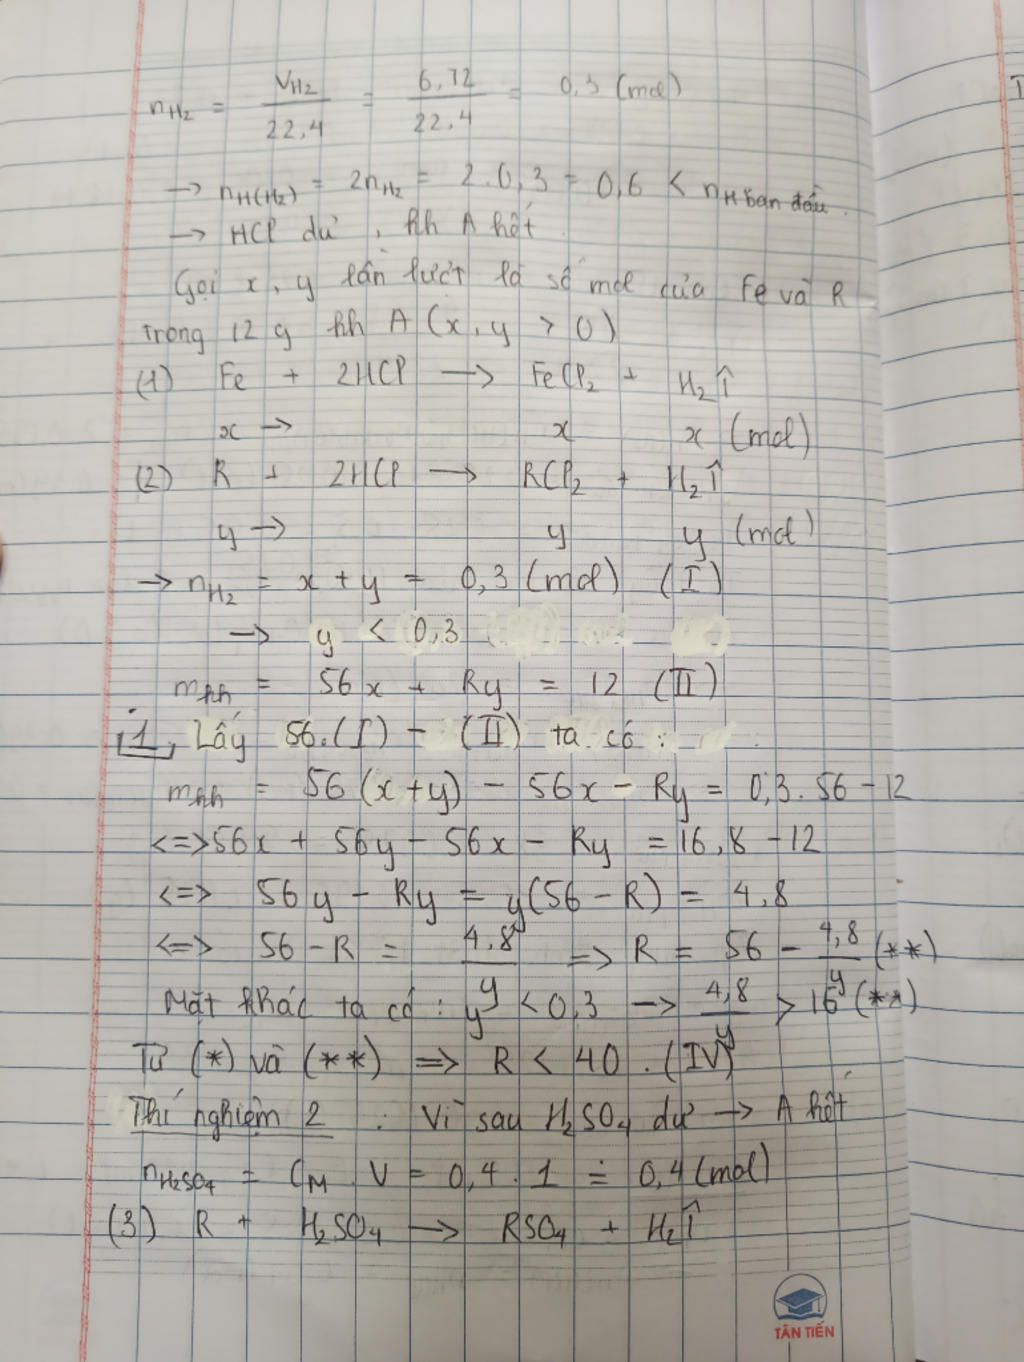 nH2 = VH2/22,4 = 6,72/22,4 = 0,3 (mol)
→ nH(H2) = 2nH2 = 2.0,3 = 0,6 < nH ban đầu.
→ HCl dư, hh A hết.
Gọi x, y lần lượt là số mol của Fe và R
trong 12 g hh A (x, y > 0)
(1) Fe + 2HCl → FeCl2 + H2↑
x → x x (mol)
(2) R + 2HCl → RCl2 + H2↑
y → y y (mol)
→ nH2 = x + y = 0,3 (mol) (I)
→ y < 0,3
mhh = 56x + Ry = 12 (II)
1, Lấy 56.(I) - (II) ta có :
mhh = 56(x+y) - 56x - Ry = 0,3.56 - 12
<=> 56x + 56y - 56x - Ry = 16,8 - 12
<=> 56y - Ry = y(56 - R) = 4,8
<=> 56 - R = 4,8/y => R = 56 - 4,8/y (**)
Mặt khác ta có : y < 0,3 → 4,8/y > 16 (**)
Từ (*) và (**) => R < 40 . (IV)
Thí nghiệm 2 : Vì sau H2SO4 dư → A hết
nH2SO4 = CM . V = 0,4 . 1 = 0,4 (mol)
(3) R + H2SO4 → RSO4 + H2↑
TÂN TIẾN